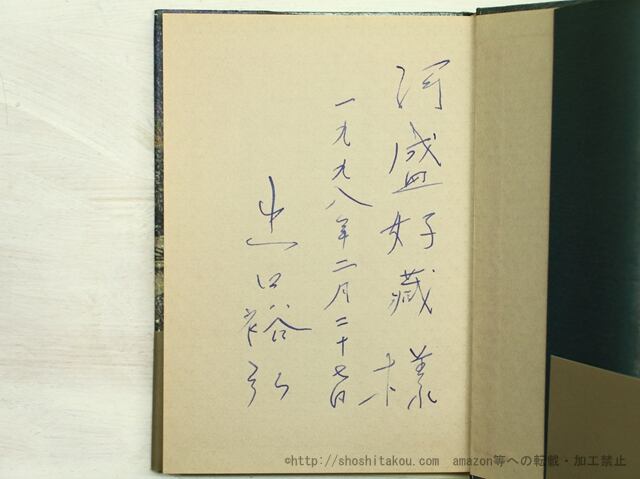 河盛好藏様
一九九八年二月二十七日
出口裕弘
©http://shoshitakou.com amazon等への転載・加工禁止